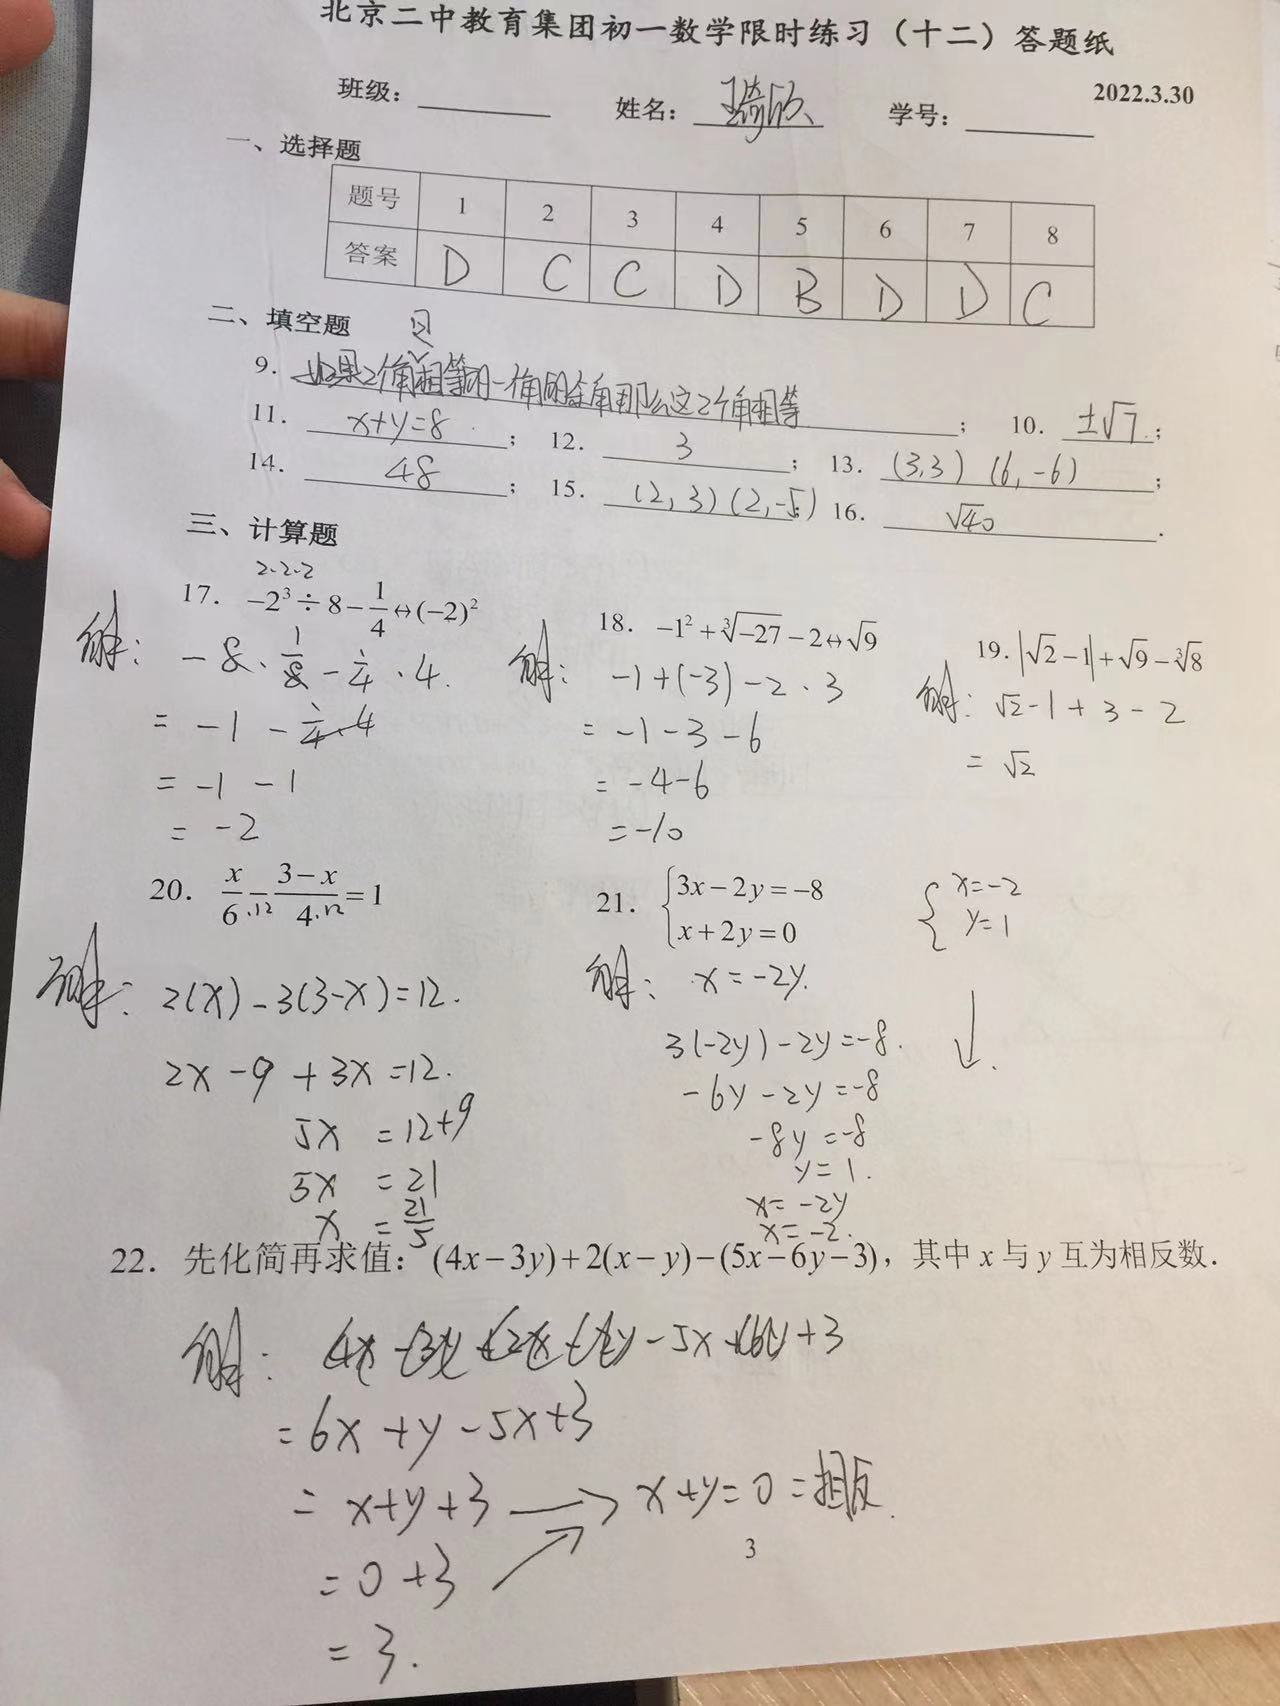 北京二中教育集团初一数学限时练习（十二）答题纸
2022.3.30
班级： 姓名： 学号：
一、选择题
题号 1 2 3 4 5 6 7 8
答案 D C C D B D D C
二、填空题
9. 如果2个角相等的一角的余角那么这2个角相等； 10. ±√7；
11. x+y=8； 12. 3； 13. (3,3) (6,-6)；
14. 48； 15. (2,3)(2,-5)； 16. √40.
三、计算题
2·2·2
17. -2³÷8-1/4↔(-2)²
解： -8·1/8-1/4·4.
= -1-1/4·4
= -1-1
= -2
18. -1²+∛-27-2↔√9
解： -1+(-3)-2·3
= -1-3-6
= -4-6
=-10
19. |√2-1|+√9-∛8
解： √2-1+3-2
= √2
20. x/6·12-(3-x)/4·12=1
解： 2(x)-3(3-x)=12.
2x-9+3x=12.
5x=12+9
5x=21
x=21/5
21. {3x-2y=-8
x+2y=0
{x=-2
y=1
解： x=-2y.
3(-2y)-2y=-8.
-6y-2y=-8
-8y=-8
y=1.
x=-2y
x=-2.
22. 先化简再求值：(4x-3y)+2(x-y)-(5x-6y-3)，其中x与y互为相反数.
解： 4x-3y+2x-2y-5x+6y+3
=6x+y-5x+3
= x+y+3 → x+y=0=相反.
=0+3
=3.
3